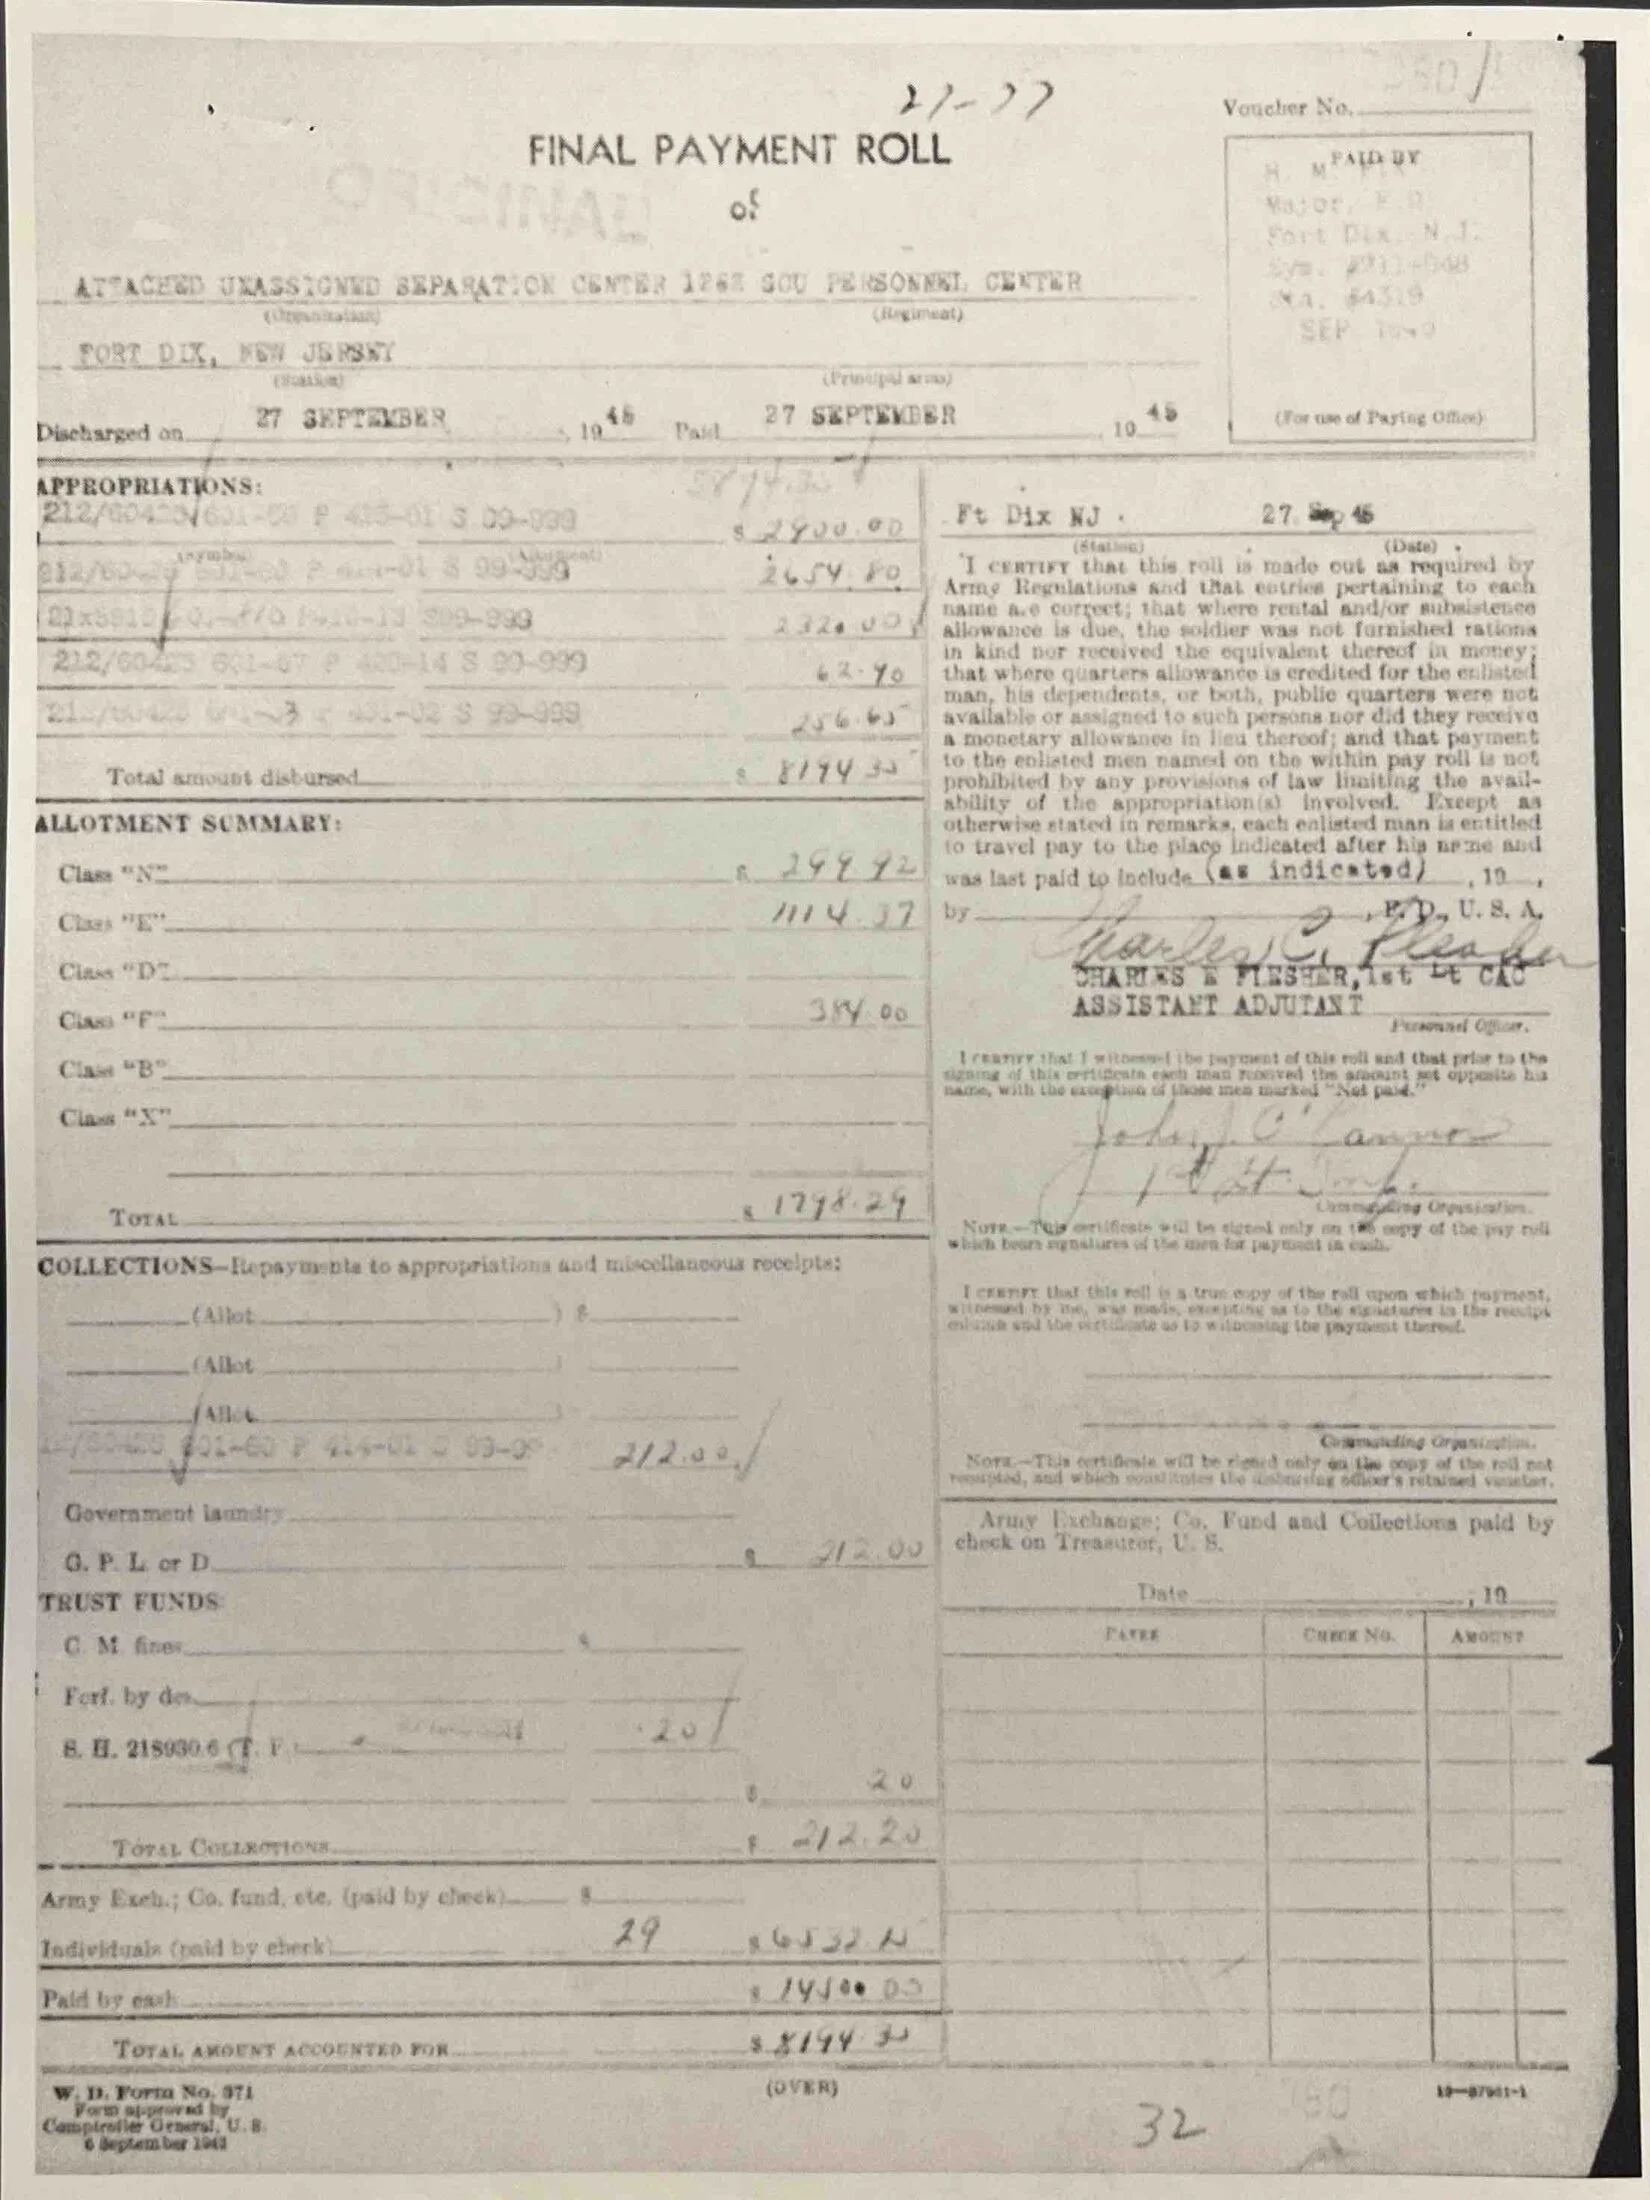 27-77
Voucher No.
FINAL PAYMENT ROLL
of
PAID BY
H. M.
Major, F.D.
Fort Dix, N.J.
SEP
ATTACHED UNASSIGNED SEPARATION CENTER 1262 SCU PERSONNEL CENTER
(Organization) (Regiment)
FORT DIX, NEW JERSEY
(Station) (Principal arms)
Discharged on 27 SEPTEMBER, 1945 Paid 27 SEPTEMBER, 1945
(For use of Paying Office)
APPROPRIATIONS:
212/60425 601-60 P 415-01 S 99-999 $ 2900.00
(Symbol) (Allotment)
P 414-01 S 99-999 2654.80
S99-999 2320.00
212/60425 601-67 P 420-14 S 99-999 62.90
P 431-02 S 99-999 256.65
Total amount disbursed $ 8194.35
ALLOTMENT SUMMARY:
Class "N" $ 299.92
Class "E" 1114.37
Class "D"
Class "F" 384.00
Class "B"
Class "X"
TOTAL $ 1798.29
COLLECTIONS—Repayments to appropriations and miscellaneous receipts:
(Allot. ) $
(Allot. )
(Allot. )
601-60 P 414-01 S 99-99 212.00
Government laundry
G. P. L. or D. $ 212.00
TRUST FUNDS:
C. M. fines $
Forf. by des.
S. H. 218930.6 (T. F.) .20
$ .20
TOTAL COLLECTIONS $ 212.20
Army Exch.; Co. fund, etc. (paid by check) $
Individuals (paid by check) 29 $ 6532.15
Paid by cash $
TOTAL AMOUNT ACCOUNTED FOR $ 8194.35
W. D. Form No. 371
Form approved by
Comptroller General, U. S.
6 September 1943
(OVER)
Ft Dix NJ. 27 Sep 45
(Station) (Date)
I CERTIFY that this roll is made out as required by
Army Regulations and that entries pertaining to each
name are correct; that where rental and/or subsistence
allowance is due, the soldier was not furnished rations
in kind nor received the equivalent thereof in money;
that where quarters allowance is credited for the enlisted
man, his dependents, or both, public quarters were not
available or assigned to such persons nor did they receive
a monetary allowance in lieu thereof; and that payment
to the enlisted men named on the within pay roll is not
prohibited by any provisions of law limiting the avail-
ability of the appropriation(s) involved. Except as
otherwise stated in remarks, each enlisted man is entitled
to travel pay to the place indicated after his name and
was last paid to include (as indicated), 19 ,
by , F. D., U. S. A.
Charles E. Flesher
CHARLES E FLESHER, 1st Lt CAC
ASSISTANT ADJUTANT
Personnel Officer.
I CERTIFY that I witnessed the payment of this roll and that prior to the
signing of this certificate each man received the amount set opposite his
name, with the exception of those men marked "Not paid."
John J. O'Connor
1st Lt. Inf.
Commanding Organization.
NOTE.—This certificate will be signed only on the copy of the pay roll
which bears signatures of the men for payment in cash.
I CERTIFY that this roll is a true copy of the roll upon which payment,
witnessed by me, was made, excepting as to the signatures in the receipt
column and the certificate as to witnessing the payment thereof.
Commanding Organization.
NOTE.—This certificate will be signed only on the copy of the roll not
receipted, and which constitutes the disbursing officer's retained voucher.
Army Exchange; Co. Fund and Collections paid by
check on Treasurer, U. S.
Date , 19
PAYEE CHECK NO. AMOUNT
32